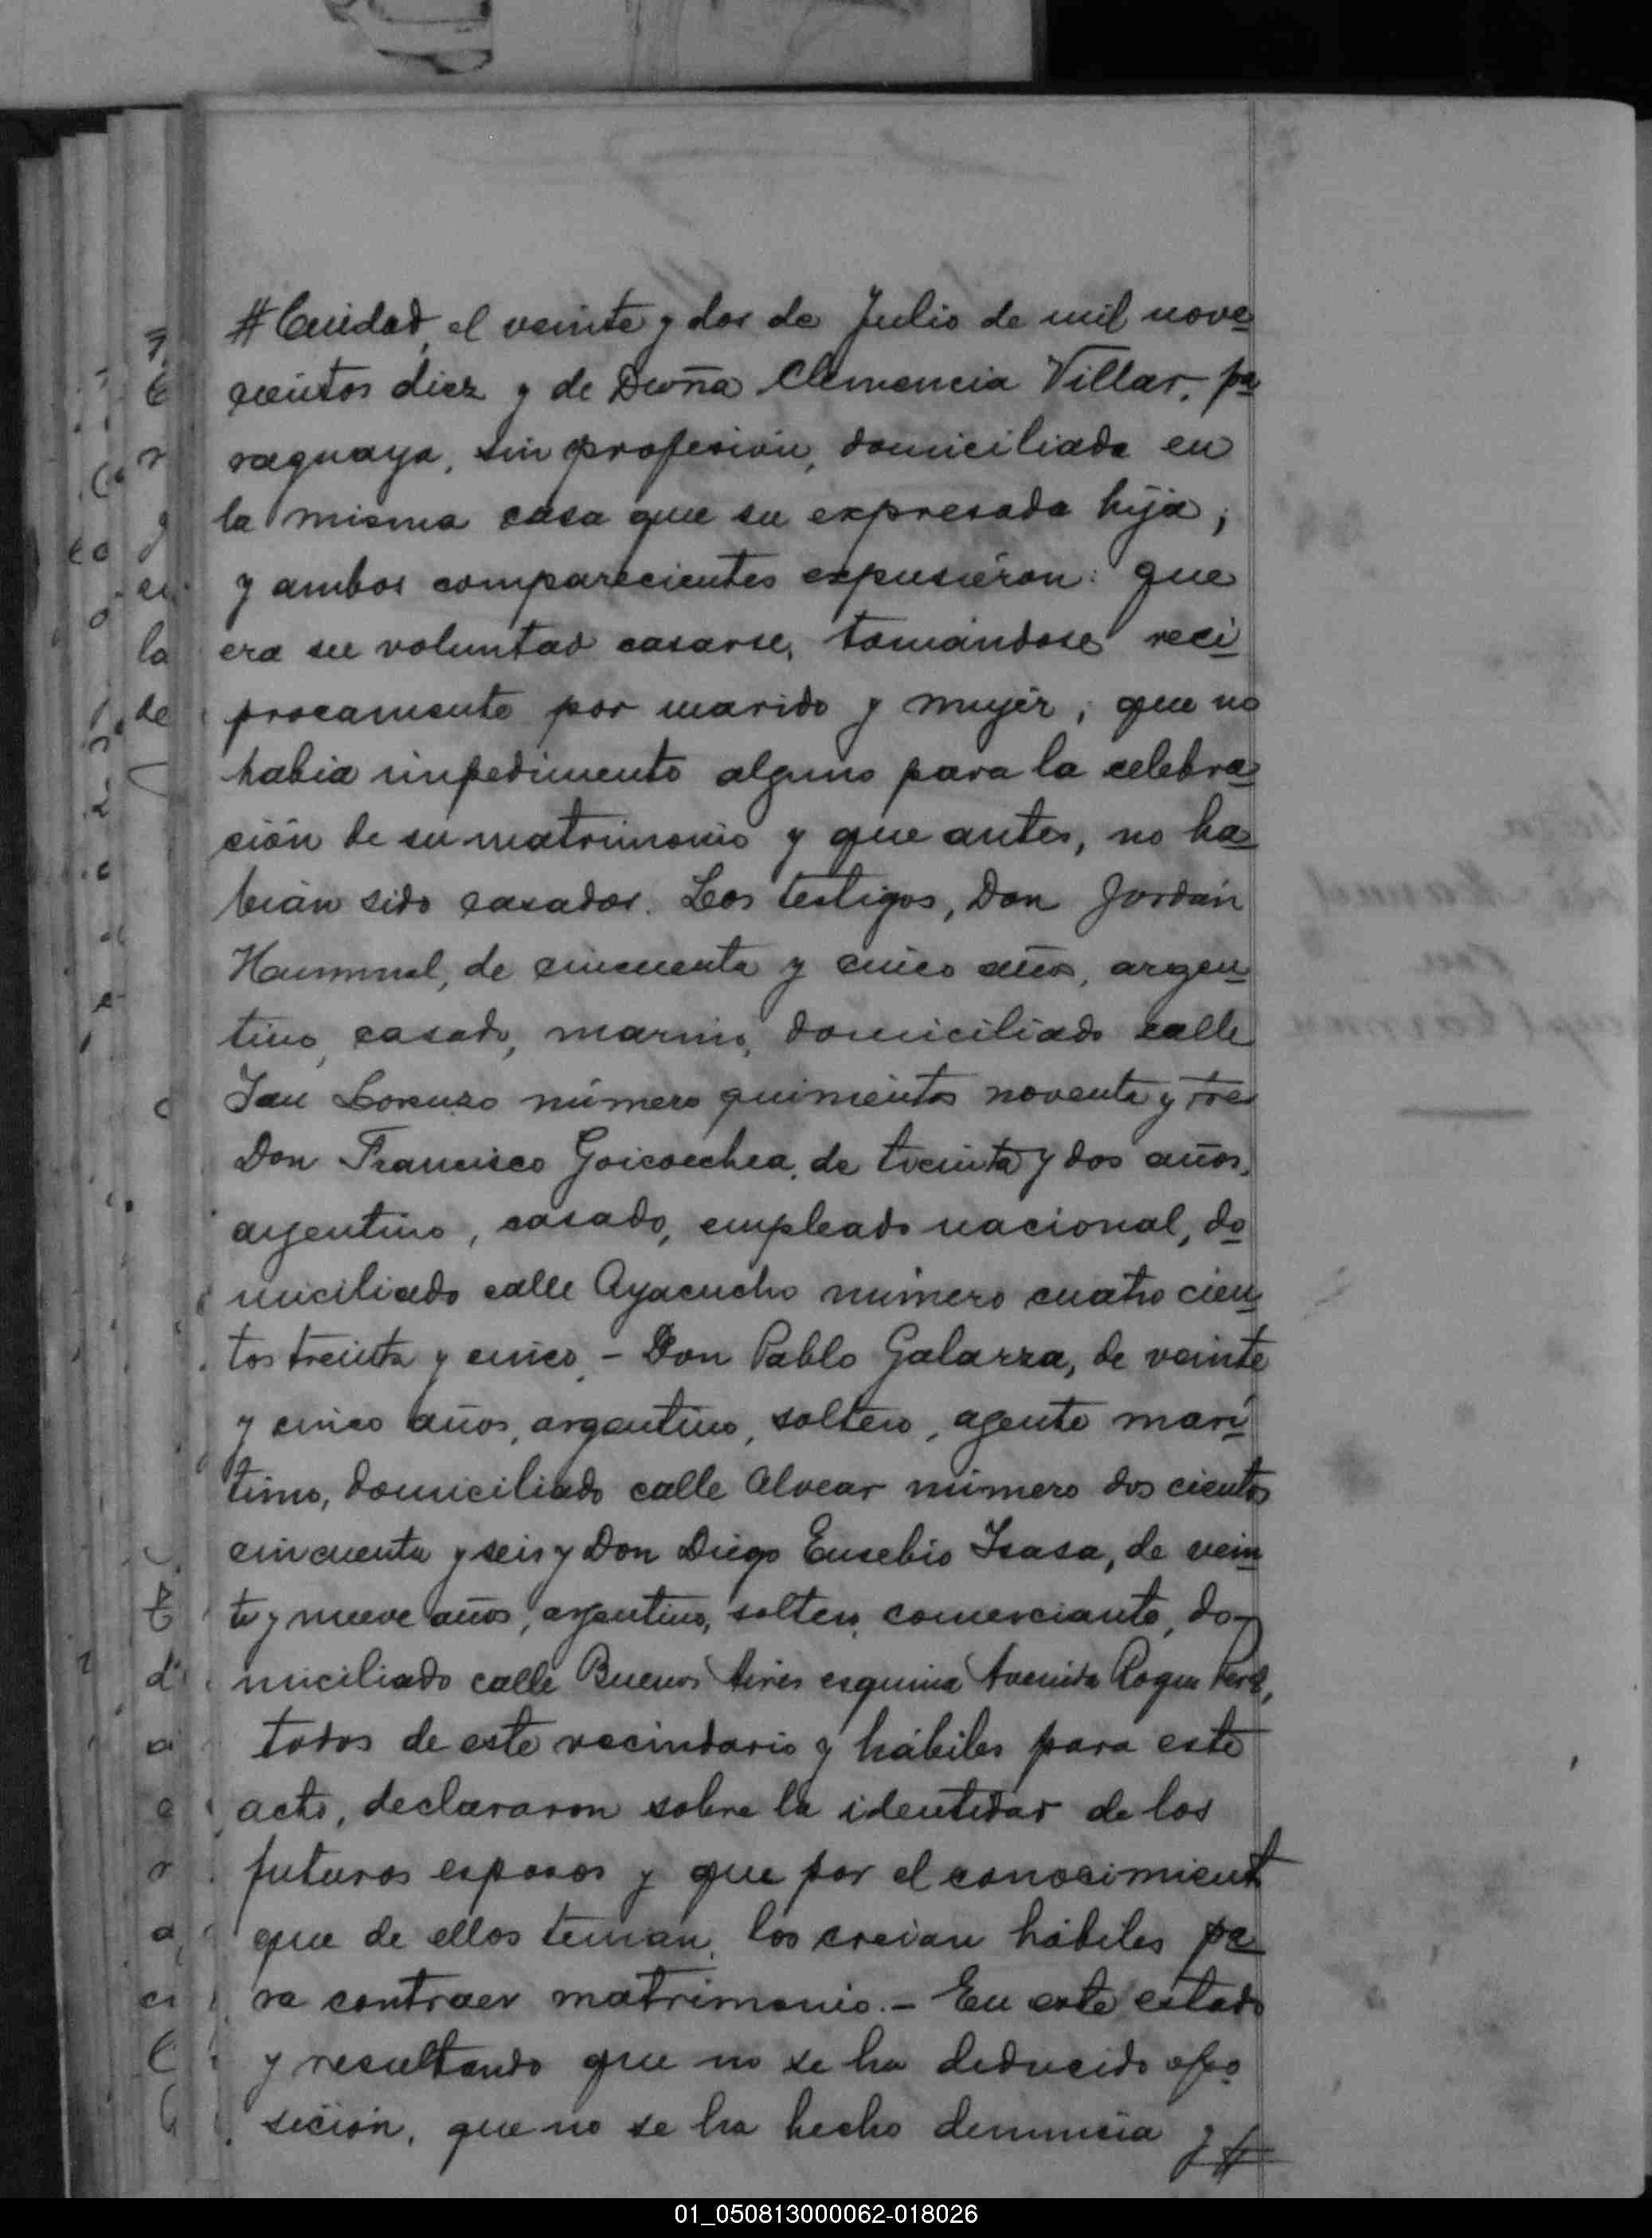 # Cuidad, el veinte y dos de Julio de mil nove
cientos diez y de Doña Clemencia Villar, pa
raguaya, sin profesión, domiciliada en
la misma casa que su expresada hija;
y ambos comparecientes expusieron: que
era su voluntad casarse, tomándose reci
procamente por marido y mujer; que no
habia impedimento alguno para la celebra
ción de su matrimonio y que antes, no ha
bian sido casados. Los testigos, Don Jordán
de cincuenta y cinco años, argen
tino, casado, marino, domiciliado calle
San Lorenzo número quinientos noventa y tres
Don Francisco Goicoechea, de treinta y dos años,
argentino, casado, empleado nacional, do
miciliado calle Ayacucho número cuatro cien
tos treinta y cinco, - Don Pablo Galarza, de veinte
y cinco años, argentino, soltero, agente marí
timo, domiciliado calle Alvear número dos cientos
cincuenta y seis y Don Diego Eusebio Isasa, de vein
te y nueve años, argentino, soltero, comerciante, do-
miciliado calle Buenos Aires esquina Avenida Roque
todos de este vecindario y hábiles para este
acto, declararon sobre la identidad de los
futuros esposos y que por el conocimient
que de ellos tenian, los creian hábiles pa
ra contraer matrimonio. - En este estado
y resultando que no se ha deducido opo
sición, que no se ha hecho denuncia y #
01_050813000062-018026